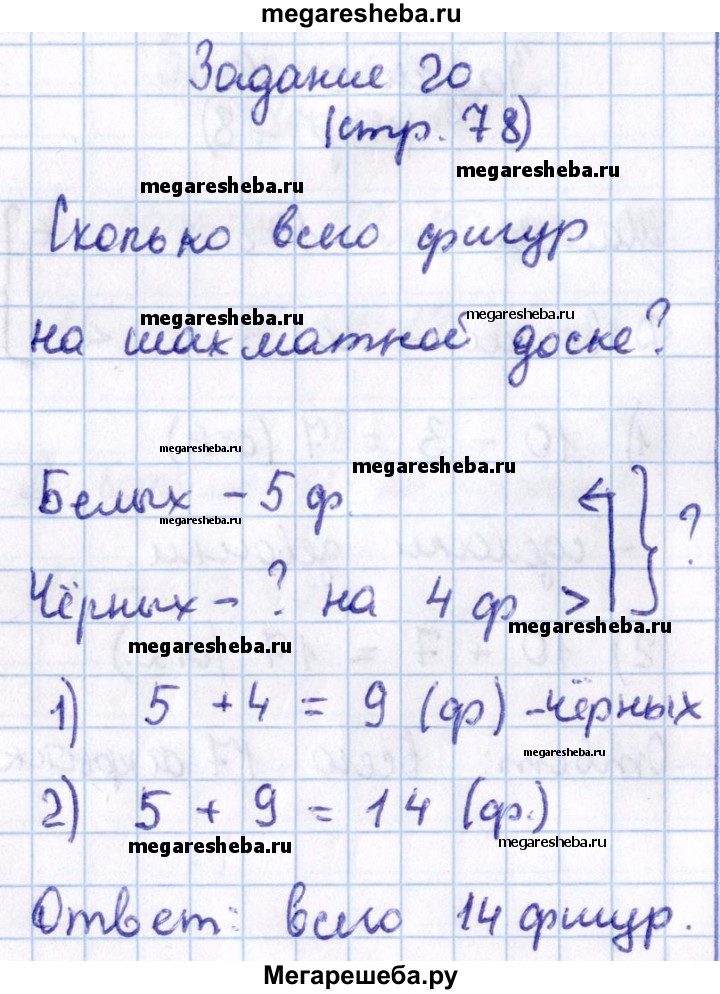 megaresheba.ru
Задание 20
(стр. 78)
megaresheba.ru
megaresheba.ru
Сколько всего фигур
megaresheba.ru
megaresheba.ru
на шахматной доске?
megaresheba.ru
megaresheba.ru
Белых – 5 ф.
megaresheba.ru
?
Чёрных – ? на 4 ф >
megaresheba.ru
megaresheba.ru
1) 5 + 4 = 9 (ф) – чёрных
megaresheba.ru
2) 5 + 9 = 14 (ф.)
megaresheba.ru
megaresheba.ru
Ответ: всего 14 фигур.
Мегарешеба.ру